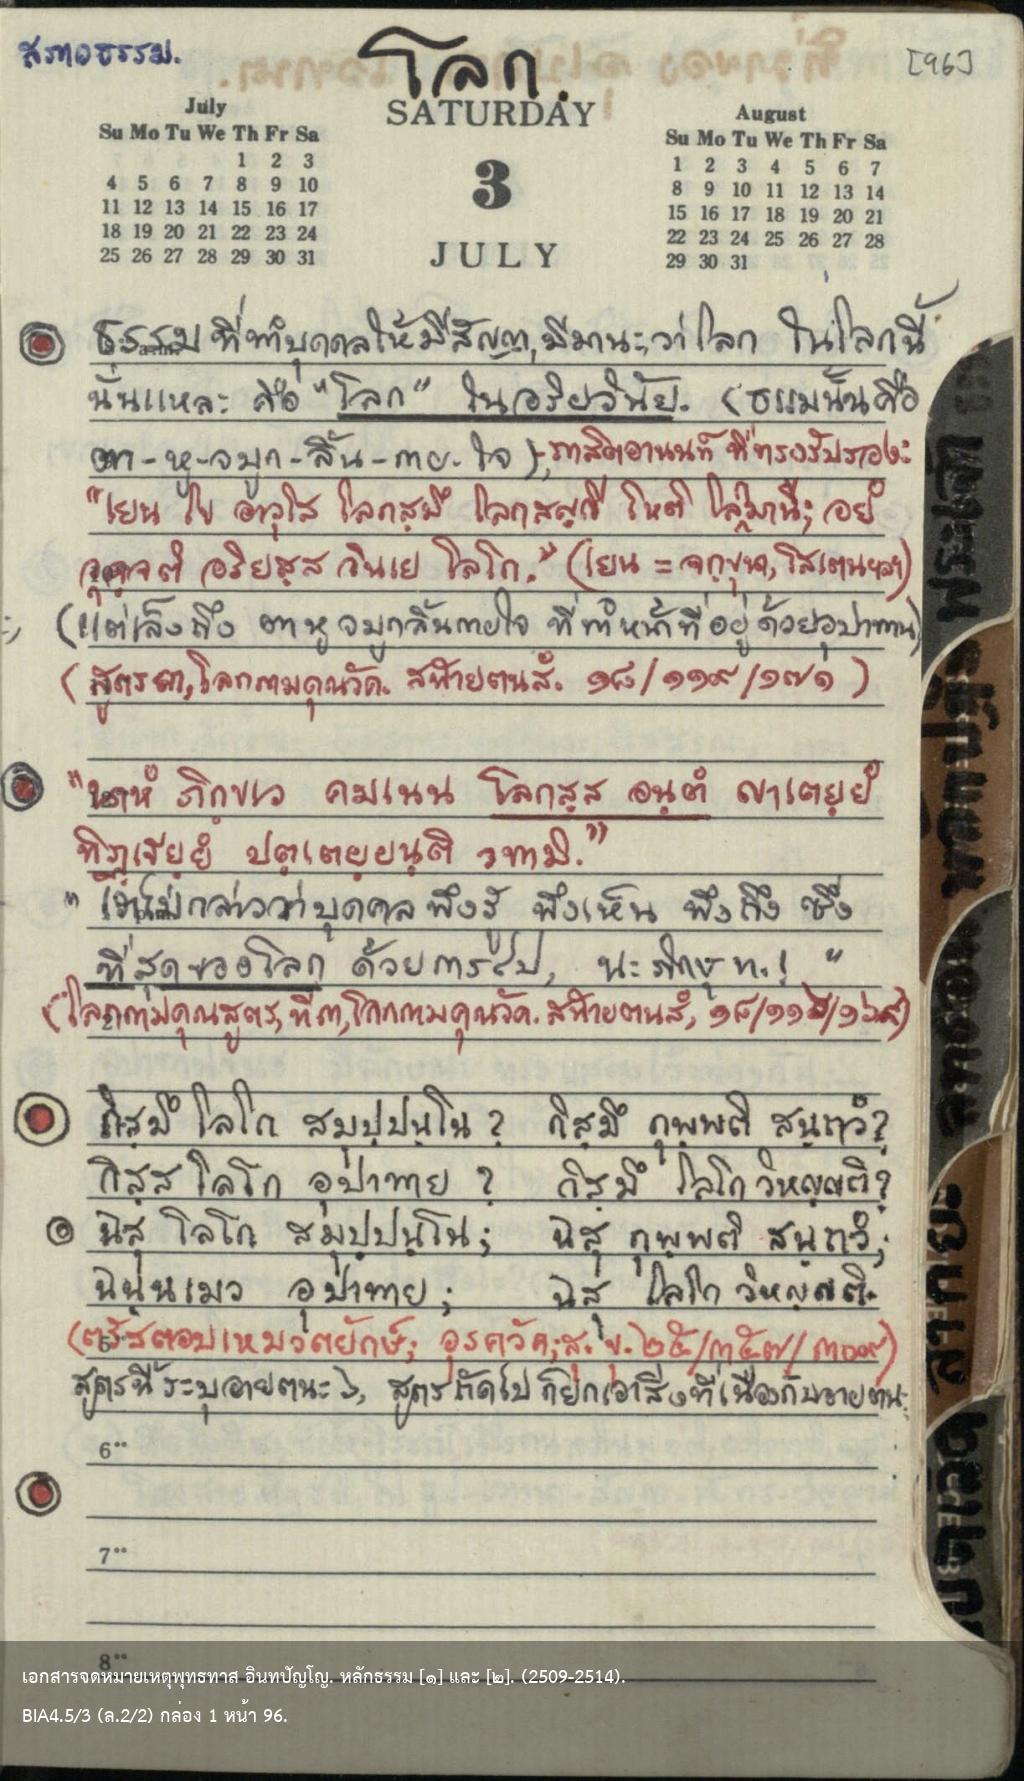 สรทอธรรม.
โลก.
[96]
July
Su Mo Tu We Th Fr Sa
1 2 3
4 5 6 7 8 9 10
11 12 13 14 15 16 17
18 19 20 21 22 23 24
25 26 27 28 29 30 31
SATURDAY
3
JULY
August
Su Mo Tu We Th Fr Sa
1 2 3 4 5 6 7
8 9 10 11 12 13 14
15 16 17 18 19 20 21
22 23 24 25 26 27 28
29 30 31
ธรรมที่ทำบุคคลให้มีสัญญา, มีมานะ, ว่าโลก ในโลกนี้
นั่นแหละ คือ "โลก" ในอริยวินัย. (ธรรมนั้นคือ
ตา-หู-จมูก-ลิ้น-กาย-ใจ); ภาสิตอานนท์ ที่ทรงรับรอง:
"เยน โข อาวุโส โลกสฺมึ โลกสญฺญี โหติ โลกมานี; อยํ
วุจฺจติ อริยสฺส วินเย โลโก." (เยน = จกฺขุนา, โสเตนฯลฯ)
(แต่เล็งถึง ตาหูจมูกลิ้นกายใจ ที่ทำหน้าที่อยู่ด้วยอุปาทาน)
(สูตร ๓, โลกกามคุณวัค. สฬายตนสํ. ๑๘/๑๑๙/๑๗๑)
"นาหํ ภิกฺขเว คมเนน โลกสฺส อนฺตํ ญาเตยฺยํ
ทิฏฺเฐยฺยํ ปตฺเตยฺยนฺติ วทามิ."
"เราไม่กล่าวว่าบุคคล พึงรู้ พึงเห็น พึงถึง ซึ่ง
ที่สุดของโลก ด้วยการไป, นะ ภิกษุ ท.! "
(โลกกามคุณสูตร, ที่ ๓, โลกกามคุณวัค. สฬายตนสํ, ๑๘/๑๑๖/๑๖๙)
กิสฺมึ โลโก สมุปฺปนฺโน? กิสฺมึ กุพฺพติ สนฺถวํ?
กิสฺส โลโก อุปาทาย? กิสฺมึ โลโก วิหญฺญติ?
ฉสุ โลโก สมุปฺปนฺโน; ฉสุ กุพฺพติ สนฺถวํ;
ฉนฺนเมว อุปาทาย; ฉสุ โลโก วิหญฺญติ.
(ตรัสตอบเหมวตยักษ์; อุรควัค; สุ. ขุ. ๒๕/๓๕๗/๓๐๙)
สูตรนี้ระบุอายตนะ ๖, สูตรถัดไป ก็ยกเอาสิ่งที่เนื่องกับอายตนะ
6··
7··
8··
เอกสารจดหมายเหตุพุทธทาส อินทปัญโญ. หลักธรรม [๑] และ [๒]. (2509-2514).
BIA4.5/3 (ล.2/2) กล่อง 1 หน้า 96.